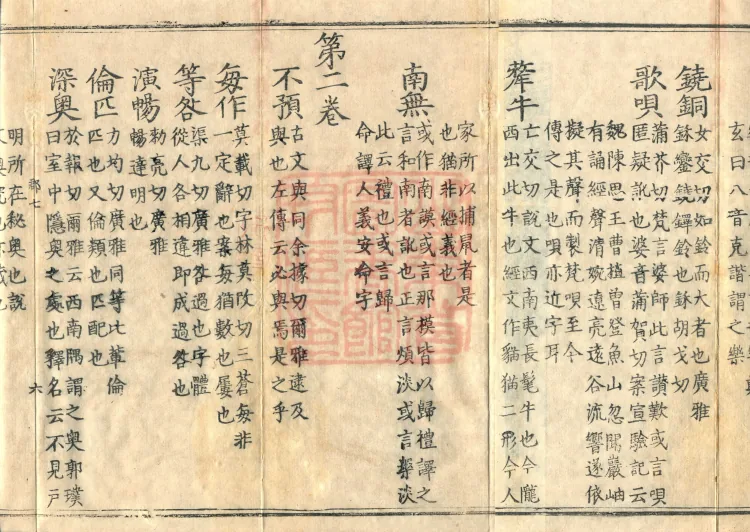 玄曰八音克諧謂之樂
鐃銅
女交切如鈴而大者也廣雅
鉌鑾鐃鐸鈴也鉌胡戈切
歌唄
蒲芥切梵言婆師此言讃歎或言唄
匿疑訛也婆音蒲賀切案宣驗記云
魏陳思王曹植曾登魚山忽聞巖岫
有誦經聲清婉遠亮遠谷流響遂依
擬其聲而製梵唄至今
傳之是也唄亦近字耳
犛牛
亡交切說文西南夷長髦牛也今隴
西出此牛也經文作貓猫二形今人
家所以捕鼠者是
也猫非經義也
南無
或作南謨或言那模皆以歸禮譯之
言和南者訛也正言煩淡或言槃淡
此云禮也或言歸
命譯人義安命字
第二卷
不預
古文與同余據切爾雅逮及
與也左傳云必與焉是之乎
毎作
莫載切字林莫改切三蒼毎非
一定辭也案毎猶數也屢也
等咎
渠九切廣雅咎過也字體
從人各相違即成過咎也
演暢
勑亮切廣雅
暢達明也
倫匹
力均切廣雅同等比軰倫
匹也又倫類也匹配也
深奥
於報切爾雅云西南隅謂之奥郭璞
曰室中隱奥之處也釋名云不見户
明所在秘奥也說
郡七
六